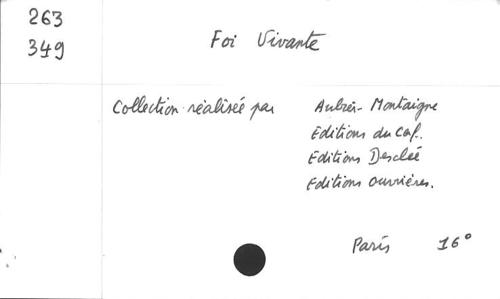 263
349
Foi Vivante
Collection réalisée par Aubier-Montaigne
Editions du Cerf.
Editions Desclée
Editions ouvrières.
Paris 16°